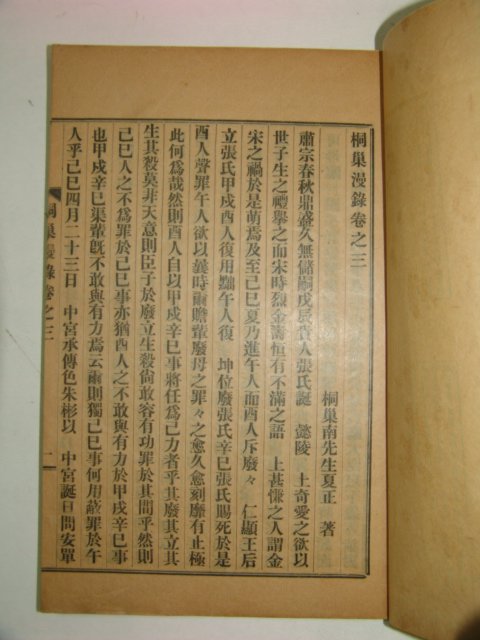 桐巢漫錄卷之三
桐巢南先生夏正 著
肅宗春秋鼎盛久無儲嗣戊辰貴人張氏誕 懿陵 上奇愛之欲以
世子生之禮擧之而宋時烈金壽恒有不滿之語 上甚慊之人謂金
宋之禍於是萌焉及至己巳夏乃進午人而酉人斥廢々 仁顯王后
立張氏甲戌酉人復用黜午人復 坤位廢張氏辛巳張氏賜死於是
酉人聲罪午人欲以曩時爾瞻輩廢母之罪々之愈久愈刻靡有止極
此何爲哉然則酉人自以甲戌辛巳事將任爲己力者乎其廢其立其
生其殺莫非天意則臣子於廢立生殺尙敢容有功罪於其間乎然則
己巳人之不爲罪於己巳事亦猶酉人之不敢與有力於甲戌辛巳事
也甲戌辛巳渠輩旣不敢與有力焉云爾則獨己巳事何用蔽罪於午
人乎己巳四月二十三日 中宮承傳色朱彬以 中宮誕日問安單
桐巢漫錄卷之三
一